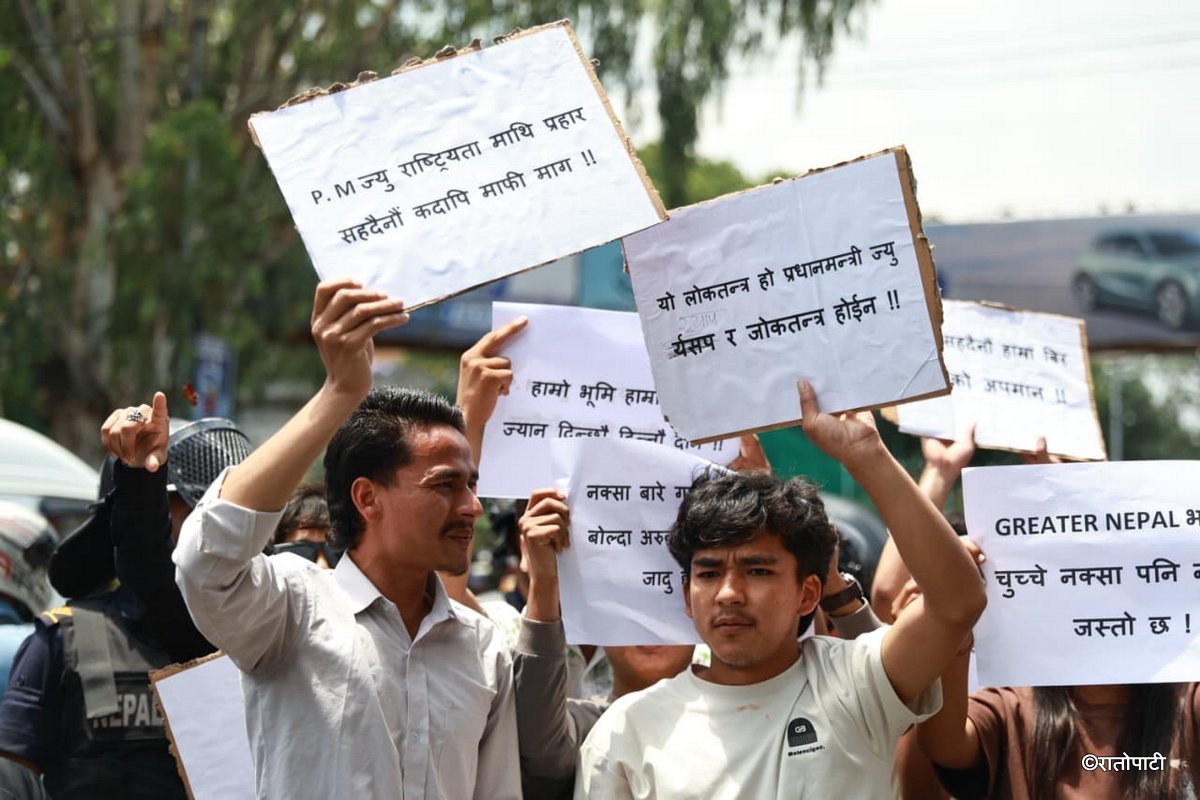 P.M ज्यु राष्ट्रियता माथि प्रहार
सहदैनौं कदापि माफी माग !!
यो लोकतन्त्र हो प्रधानमन्त्री ज्यु
र्यसप र जोकतन्त्र होईन !!
हामो भूमि
ज्यान
सहदैनौ हामा
को अपमान !!
नक्सा बारे
बोल्दा
जादु
GREATER NEPAL
चुच्चे नक्सा पनि
जस्तो छ !
NEPAL
Balenciger.
©रातोपाटी